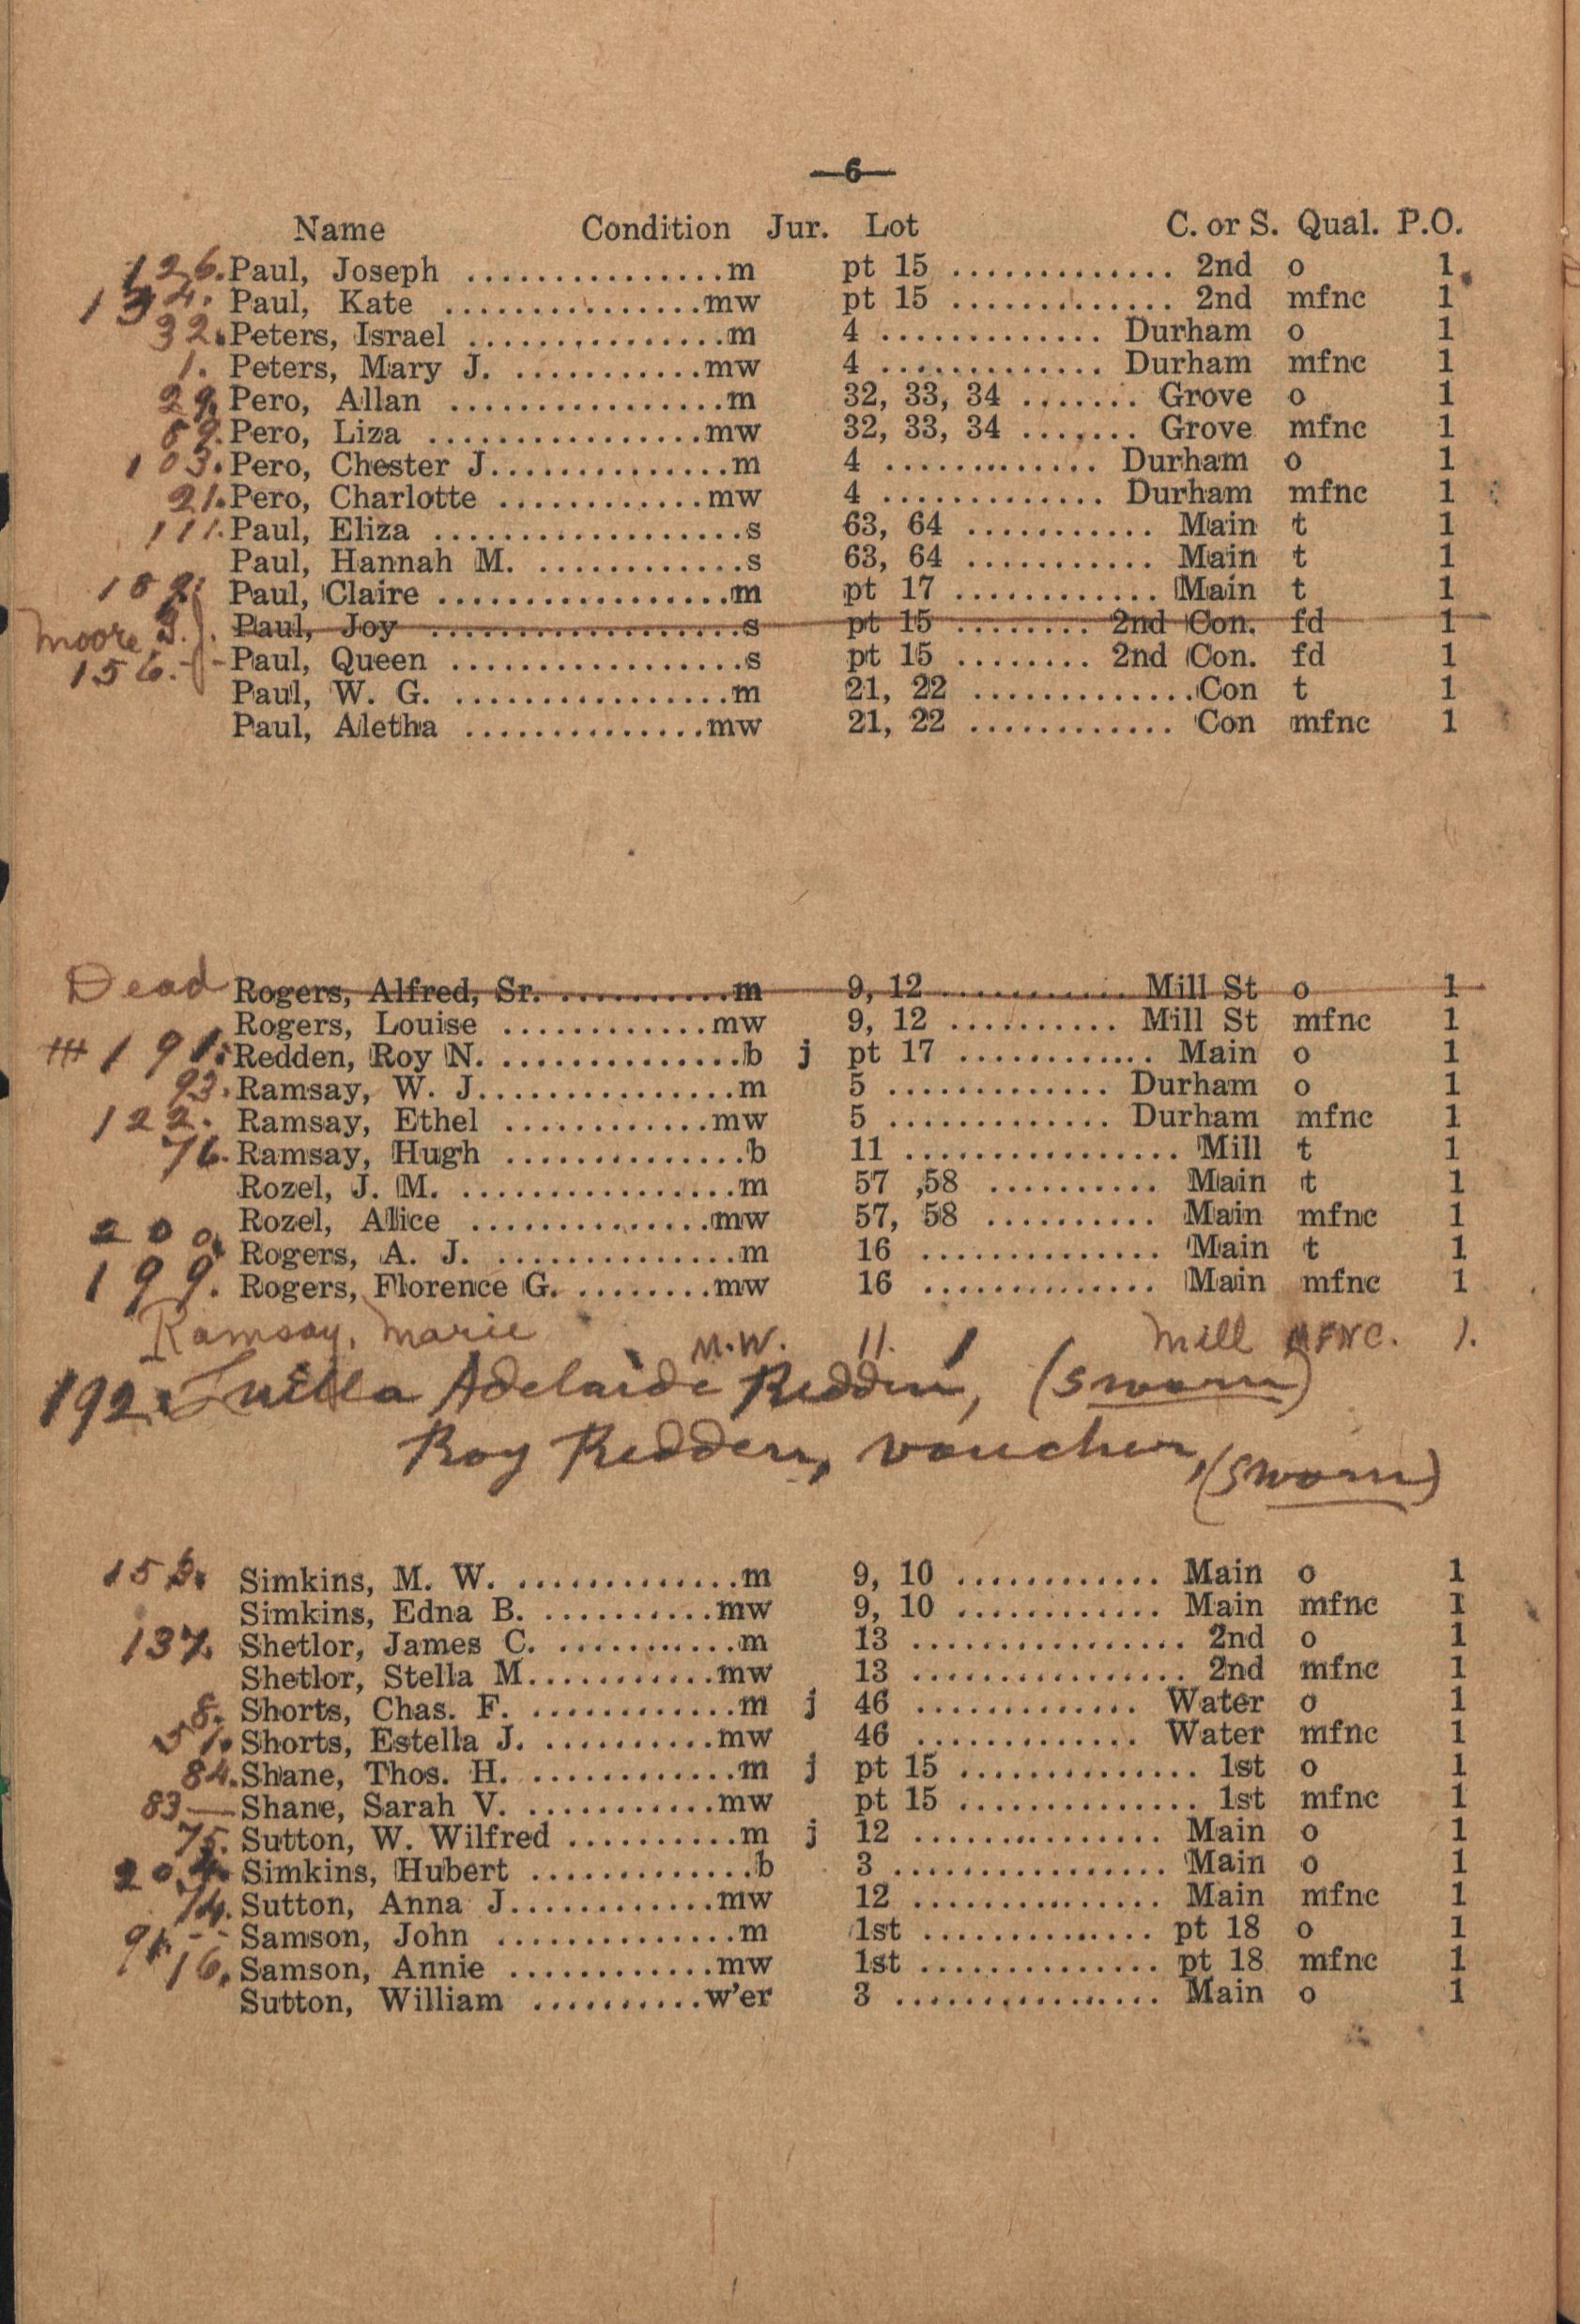 —6—
Name Condition Jur. Lot C. or S. Qual. P.O.
126. Paul, Joseph ...............m pt 15 ............. 2nd o 1
134. Paul, Kate ...............mw pt 15 ............. 2nd mfnc 1
32. Peters, Israel ...............m 4 ............. Durham o 1
1. Peters, Mary J. ...........mw 4 ............. Durham mfnc 1
29. Pero, Allan ................m 32, 33, 34 ....... Grove o 1
89. Pero, Liza ................mw 32, 33, 34 ....... Grove mfnc 1
103. Pero, Chester J..............m 4 ............. Durham o 1
21. Pero, Charlotte ............mw 4 ............. Durham mfnc 1
111. Paul, Eliza ..................s 63, 64 ........... Main t 1
Paul, Hannah M. ............s 63, 64 ........... Main t 1
189. Paul, Claire .................m pt 17 ............ Main t 1
Moore J. Paul, Joy ..................s pt 15 ........ 2nd Con. fd 1
156. Paul, Queen .................s pt 15 ........ 2nd Con. fd 1
Paul, W. G. ................m 21, 22 .............Con t 1
Paul, Aletha ..............mw 21, 22 ............ Con mfnc 1
Dead Rogers, Alfred, Sr. ..........m 9, 12 ........... Mill St o 1
Rogers, Louise ............mw 9, 12 .......... Mill St mfnc 1
# 191. Redden, Roy N. ..............b j pt 17 ............ Main o 1
93. Ramsay, W. J................m 5 ............. Durham o 1
122. Ramsay, Ethel ............mw 5 ............. Durham mfnc 1
76. Ramsay, Hugh ..............b 11 ................ Mill t 1
Rozel, J. M. ................m 57 ,58 .......... Main t 1
Rozel, Alice ..............mw 57, 58 .......... Main mfnc 1
200. Rogers, A. J. ..............m 16 .............. Main t 1
199. Rogers, Florence G. ........mw 16 .............. Main mfnc 1
Ramsay, Marie M.W. 11. Mill MFNC. 1.
192. Adelaide Redden, (sworn)
Roy Redden, voucher, (sworn)
Simkins, M. W. .............m 9, 10 ............ Main o 1
Simkins, Edna B. ..........mw 9, 10 ............ Main mfnc 1
137. Shetlor, James C. ...........m 13 ................ 2nd o 1
Shetlor, Stella M...........mw 13 ................ 2nd mfnc 1
8. Shorts, Chas. F. ............m j 46 ............. Water o 1
51. Shorts, Estella J. ..........mw 46 ............. Water mfnc 1
84. Shane, Thos. H. ............m j pt 15 .............. 1st o 1
83— Shane, Sarah V. ...........mw pt 15 .............. 1st mfnc 1
75. Sutton, W. Wilfred ..........m j 12 .............. Main o 1
204. Simkins, Hubert .............b 3 ................ Main o 1
74. Sutton, Anna J............mw 12 .............. Main mfnc 1
Samson, John ...............m 1st ............. pt 18 o 1
16. Samson, Annie ............mw 1st .............. pt 18 mfnc 1
Sutton, William ..........w'er 3 ............... Main o 1